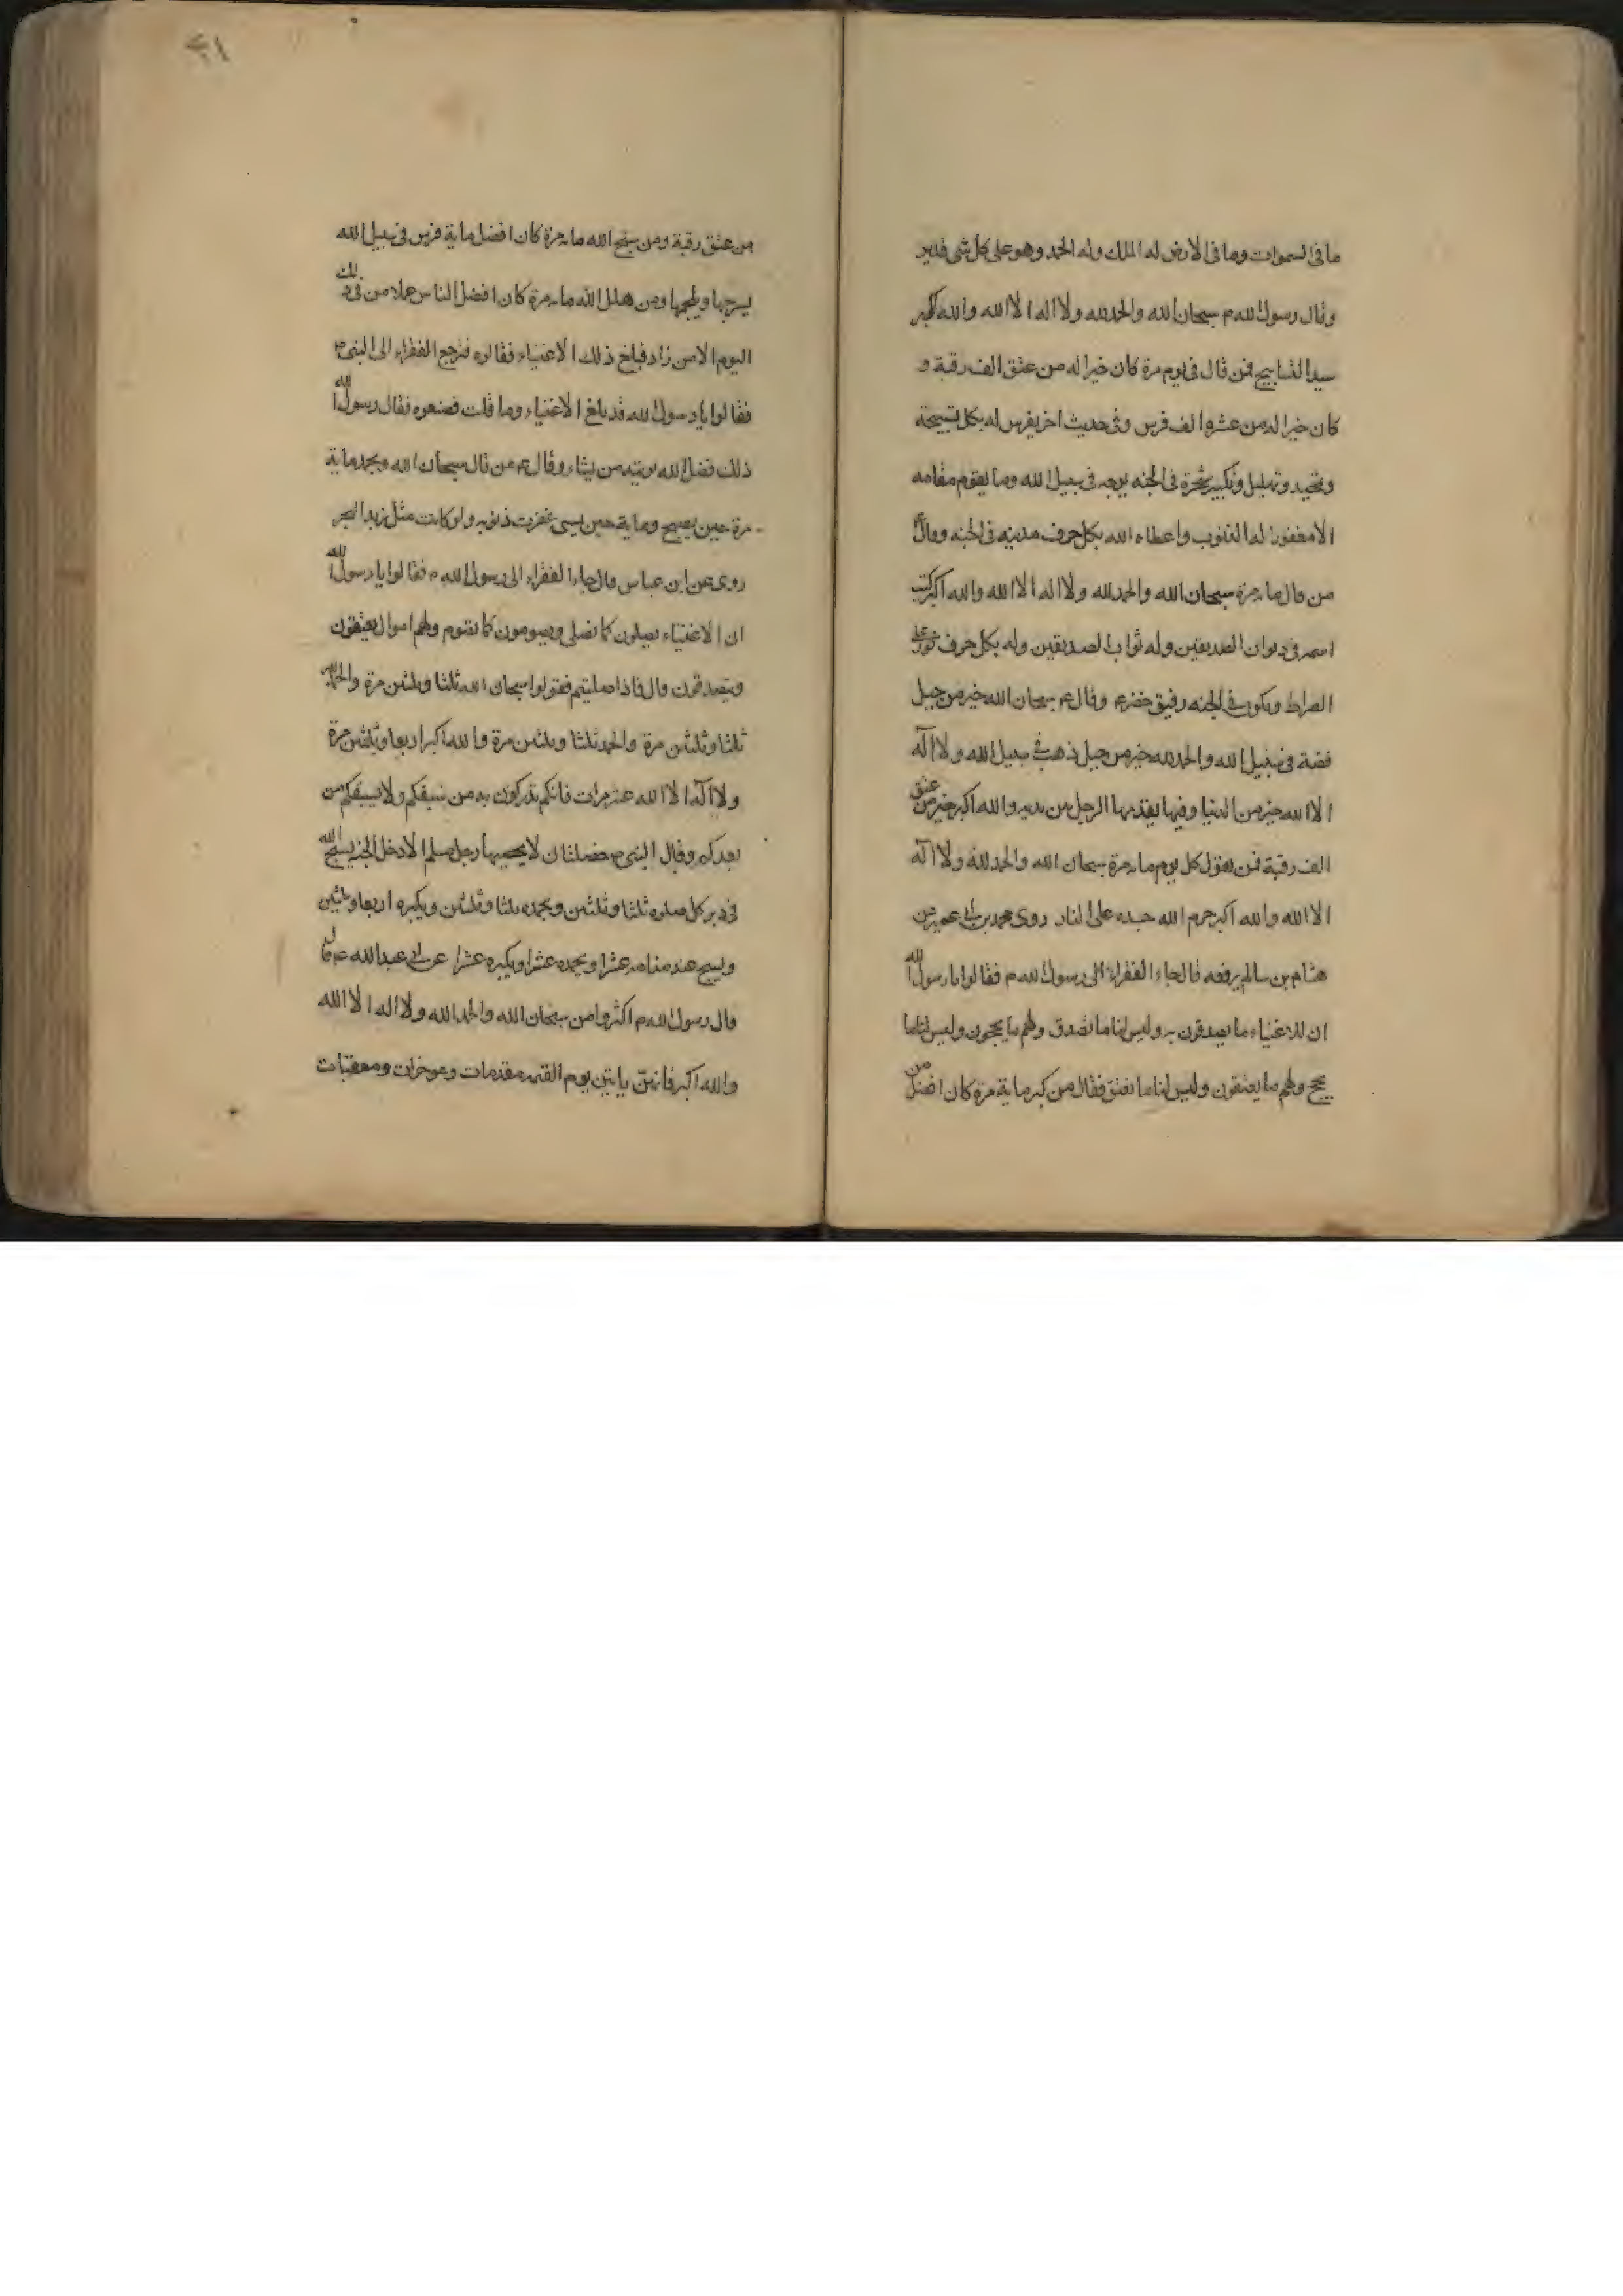 ما فى السموات وما فى الارض له الملك وله الحمد وهو على كل شى قدير
وقال رسول الله م سبحان الله والحمد لله ولا اله الا الله والله اكبر
سيد التسابيح فمن قال فى يوم مرة كان خيرا له من عتق الف رقبة و
كان خيرا له من عشرة الف فرس وفى حديث اخر يغرس له بكل تسبيحة
وتحميد وتهليل وتكبير شجرة فى الجنه يوجه فى سبيل الله وما يقوم مقامه
الا مغفورا له الذنوب واعطاه الله بكل حرف مدينه فى الجنه وقال ع
من قال مايه مرة سبحان الله والحمد لله ولا اله الا الله والله اكبر كتب
اسمه فى ديوان الصديقين وله ثواب الصديقين وله بكل حرف نور على
الصراط ويكون فى الجنه رفيق خضر ع وقال ع سبحان الله خير من جبل
فضة فى سبيل الله والحمد لله خير من جبل ذهب فى سبيل الله ولا اله
الا الله خير من الدنيا وفيها يقدمها الرجل من يديه والله اكبر خير من عتق
الف رقبة فمن يقول كل يوم مايه مرة سبحان الله والحمد لله ولا اله
الا الله والله اكبر حرم الله جسده على النار روى محمد بن ابى عمير عن
هشام بن سالم يرفعه قال جاء الفقراء الى رسول الله م فقالوا يا رسول الله
ان للاغنياء ما يصدقون به وليس لنا ما نصدق ولهم ما يحجون وليس لنا ما
نحج ولهم ما يعتقون وليس لنا ما نعتق فقال من كبر ماية مرة كان افضل من
٢١
من عتق رقبة ومن سبح الله مايه مرة كان افضل ماية فرس فى سبيل الله
يسرجها ويلجمها ومن هلل الله مايه مرة كان افضل الناس عملا من فى ذلك
اليوم الا من زاد فبلغ ذلك الاغنياء فقالوه فرجع الفقراء الى النبى م
فقالوا يا رسول الله قد بلغ الاغنياء وما قلت فصنعوه فقال رسول الله
ذلك فضل الله يوتيه من يشاء وقال ع من قال سبحان الله وبحمده ماية
مرة حين يصبح وماية حين يمسى غفرت ذنوبه ولو كانت مثل زبد البحر
روى عن ابن عباس قال جاء الفقراء الى رسول الله م فقالوا يا رسول الله
ان الاغنياء يصلون كما نصلى ويصومون كما نقوم ولهم اموال يعتقون
ويتصدقون قال فاذا صليتم فقولوا سبحان الله ثلثا وثلثين مرة والحمد لله
ثلثا وثلثين مرة والحمد ثلثا وثلثين مرة والله اكبر اربعا وثلثين مرة
ولا اله الا الله عشر مرات فانكم تدركون به من سبقكم ولا يسبقكم من
بعدكم وقال النبى م خصلتان لا يحصيها رجل مسلم الا دخل الجنه يسبح الله
فى دبر كل صلوه ثلثا وثلثين ويحمده ثلثا وثلثين ويكبره اربعا وثلثين
ويسبح عند منامه عشرا ويحمده عشرا ويكبره عشرا عن ابى عبد الله ع قال
قال رسول الله م اكثروا من سبحان الله والحمد لله ولا اله الا الله
والله اكبر فانهن ياتين يوم القيمه مقدمات وموخرات ومعقبات